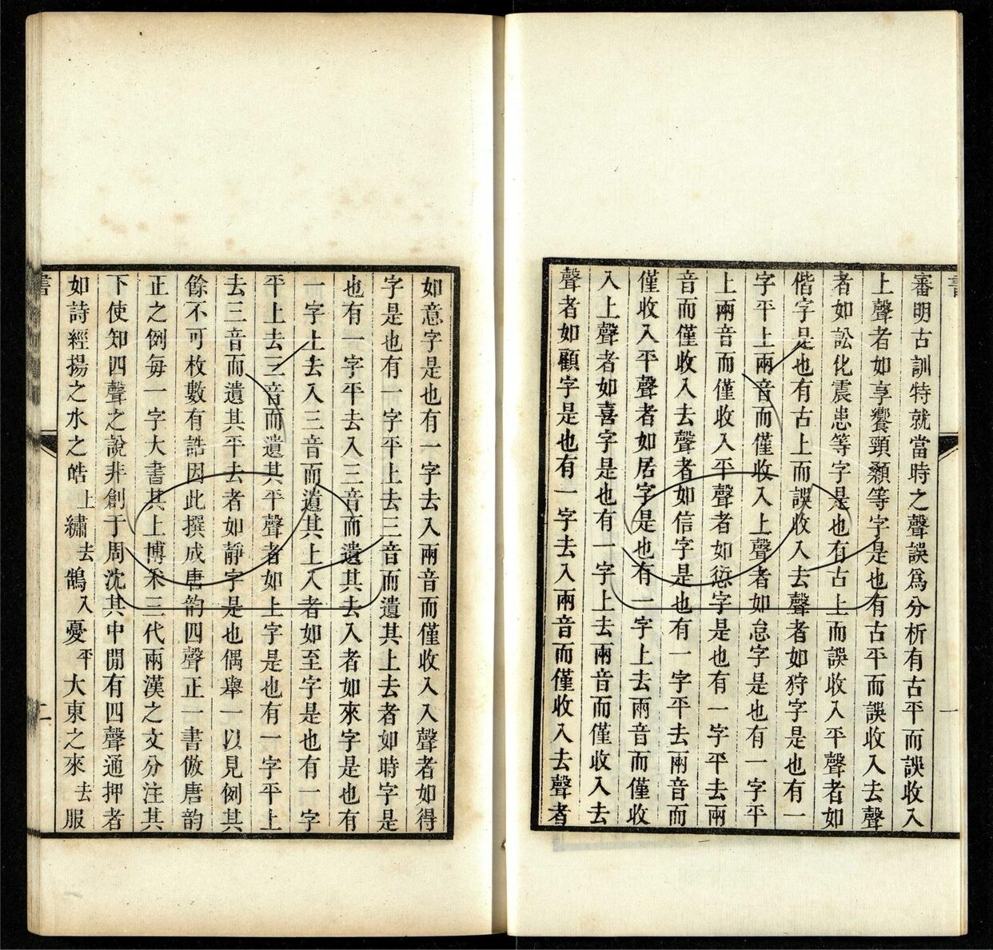 審明古訓特就當時之聲誤爲分析有古平而誤收入
上聲者如享饗頸顙等字是也有古平而誤收入去聲
者如訟化震患等字是也有古上而誤收入平聲者如
偕字是也有古上而誤收入去聲者如狩字是也有一
字平上兩音而僅收入上聲者如怠字是也有一字平
上兩音而僅收入平聲者如愆字是也有一字平去兩
音而僅收入去聲者如信字是也有一字平去兩音而
僅收入平聲者如居字是也有一字上去兩音而僅收
入上聲者如喜字是也有一字上去兩音而僅收入去
聲者如顧字是也有一字去入兩音而僅收入去聲者
如意字是也有一字去入兩音而僅收入入聲者如得
字是也有一字平上去三音而遺其上去者如時字是
也有一字平去入三音而遺其去入者如來字是也有
一字上去入三音而遺其上入者如至字是也有一字
平上去三音而遺其平聲者如上字是也有一字平上
去三音而遺其平去者如靜字是也偶舉一以見例其
餘不可枚數有誥因此撰成唐韵四聲正一書倣唐韵
正之例每一字大書其上博釆三代兩漢之文分注其
下使知四聲之說非創于周沈其中閒有四聲通押者
如詩經揚之水之皓上繡去鵠入憂平大東之來去服
二